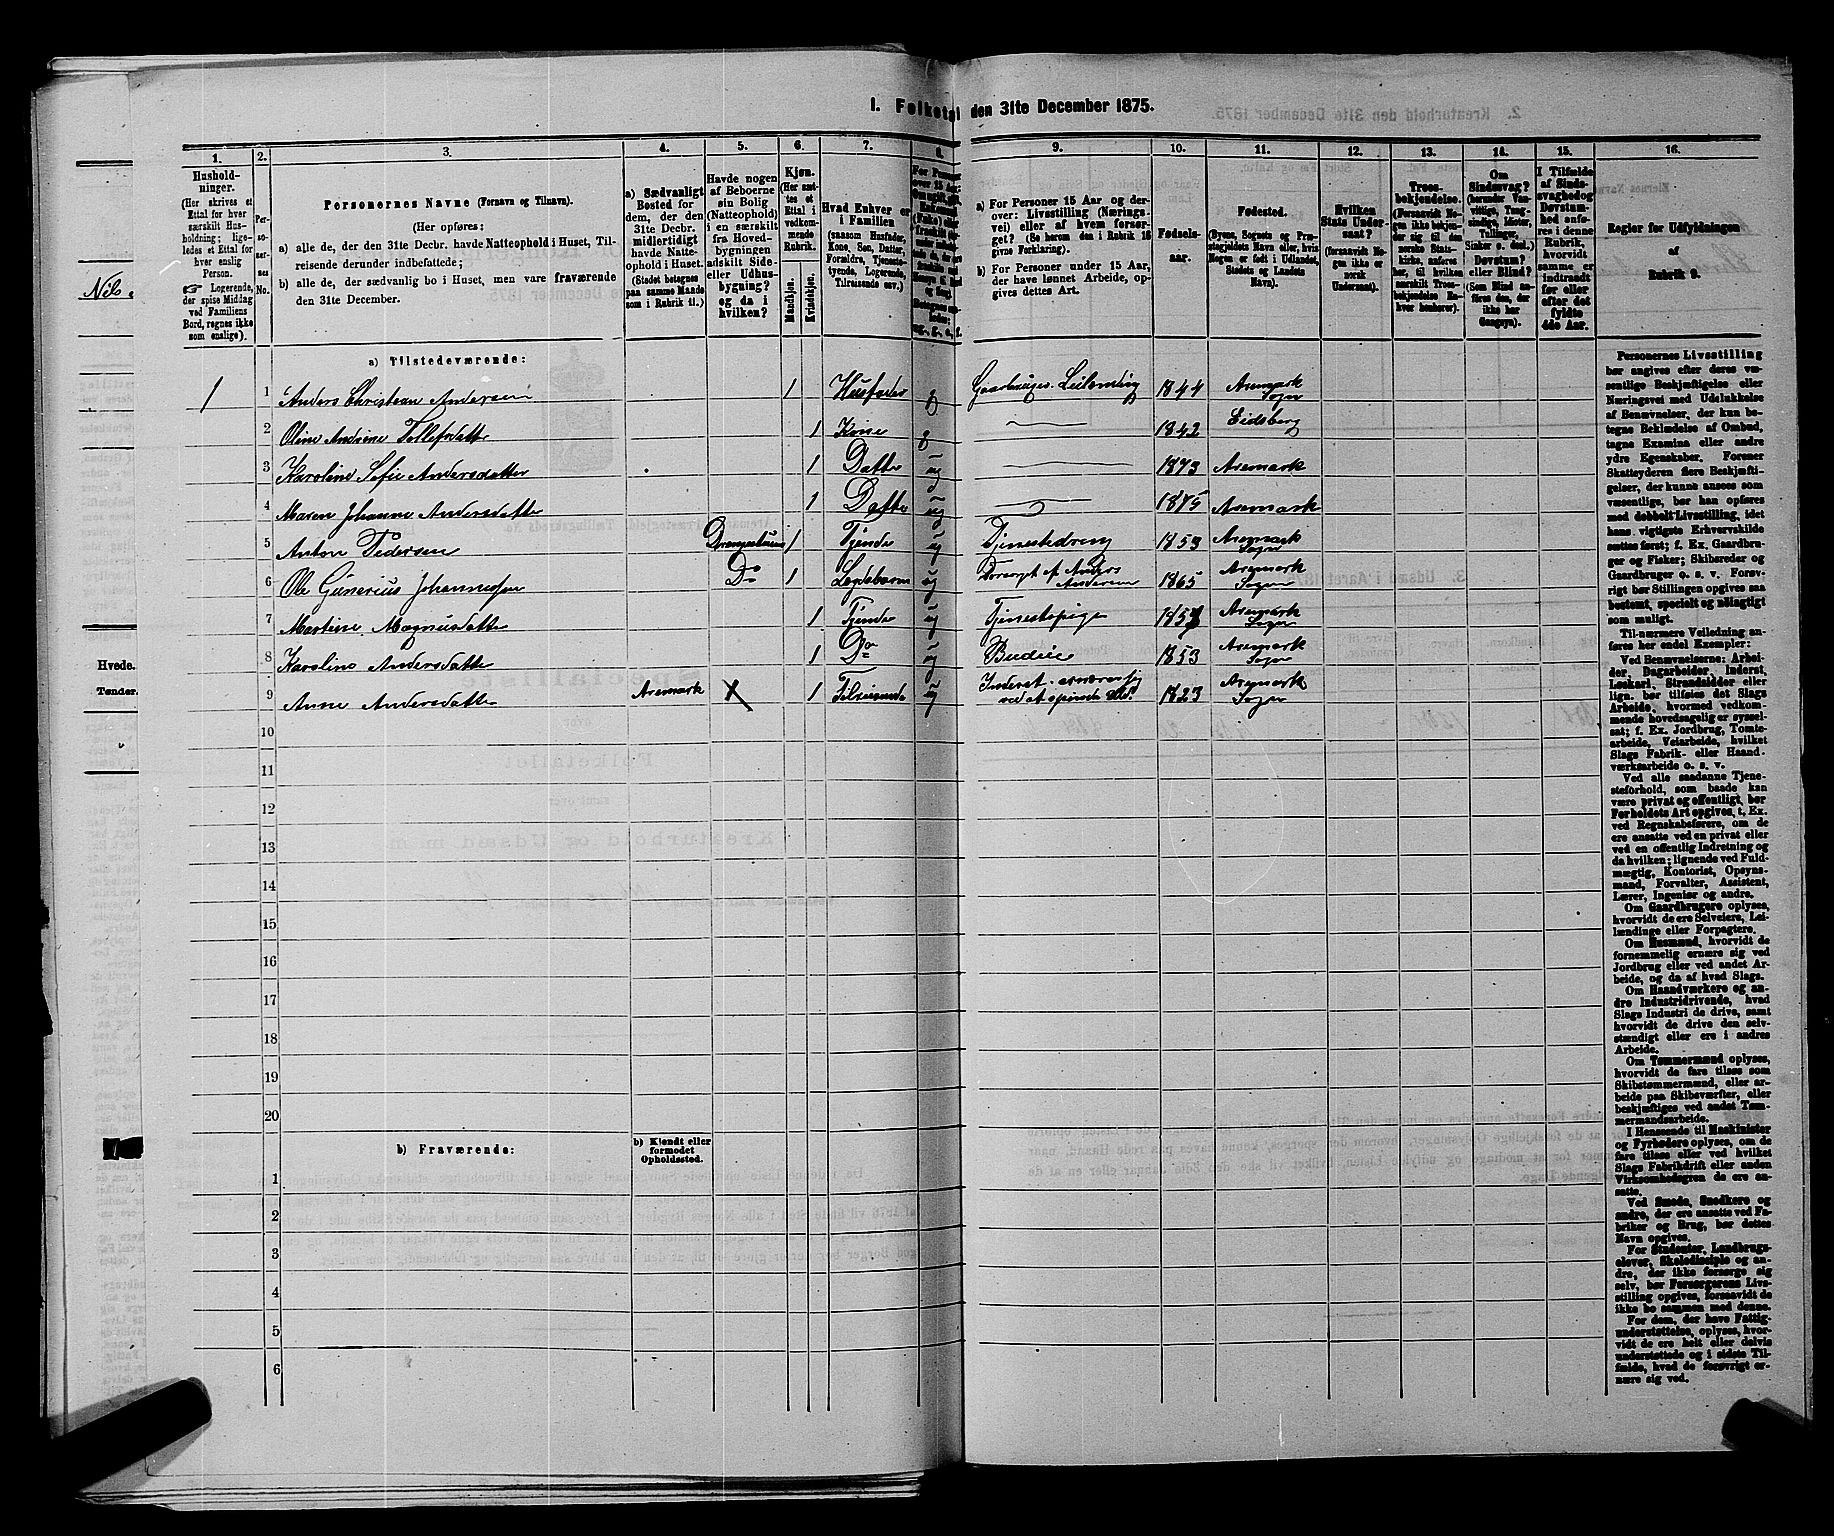 1. Folketal den 31te December 1875.
1. 2. 3. 4. 5. 6. 7. 8. 9. 10. 11. 12. 13. 14. 15. 16.
Hushold-
ninger.
(Her skrives et
Ettal for hver
særskilt Hus-
holdning; lige-
ledes et Ettal for
hver enslig
Person.
☞ Logerende,
der spise Middag
ved Familiens
Bord, regnes ikke
som enslige).
Per-
so-
ner-
nes
No.
Personernes Navne (Fornavn og Tilnavn).
(Her opføres:
a) alle de, der den 31te Decbr. havde Natteophold i Huset, Til-
reisende derunder indbefattede;
b) alle de, der sædvanlig bo i Huset, men vare fraværende
den 31te December.
a) Sædvanligt
Bosted for
dem, der den
31te Decbr.
midlertidigt
havde Natte-
ophold i Huset.
(Stedet betegnes
paa samme Maade
som i Rubrik 11.)
Havde nogen
af Beboerne
sin Bolig
(Natteophold)
i en særskilt
fra Hoved-
bygningen
adskilt Side-
eller Udhus-
bygning?
og da i
hvilken?
Kjøn.
(Her sæt-
tes et
Ettal i
vedkom-
mende
Rubrik.
Mandkjøn.
Kvindekjøn.
Hvad Enhver er
i Familien
(saasom Husfader,
Kone, Søn, Datter,
Forældre, Tjeneste-
tyende, Logerende,
Tilreisende osv.)
a) For Personer 15 Aar og der-
over: Livsstilling (Nærings-
vei) eller af hvem forsør-
get? (Se herom den i Rubrik 16
givne Forklaring).
b) For Personer under 15 Aar,
der have lønnet Arbeide, op-
gives dettes Art.
Fødsels-
aar.
Fødested.
(Byens, Sognets og Præ-
stegjeldets Navn eller, hvis
Nogen er født i Udlandet,
Stedets og Landets
Navn).
Hvilken
Stats Under-
saat?
(forsaavidt No-
gen ikke er
norsk
Undersaat).
Troes-
bekjendelse.
(Forsaavidt No-
gen ikke bekjen-
der sig til den
norske Stats-
kirke, anføres
her, til hvilken
særskilt Troes-
bekjendelse En-
hver henhører).
Om
Sindssvag?
(herunder Van-
vittige, Tung-
sindige, Idioter,
Sinker o. desl.)
Døvstum?
eller Blind?
(Som Blind an-
føres den, der
ikke har
Gangsyn).
I Tilfælde
af Sinds-
svaghed og
Døvstum-
hed anfø-
res i denne
Rubrik,
hvorvidt
samme er
indtraadt
før eller
efter det
fyldte
4de Aar.
Regler for Udfyldningen
af
Rubrik 9.
a) Tilstedeværende:
1 1 Anders Christian Andersen 1 Husfader g Gaardbruger Leilending 1844 Aremark Sogn
2 Oline Andrine Tollefsdatter 1 Kone g 1842 Eidsberg
3 Karoline Sofie Andersdatter 1 Datter ug 1873 Aremark
4 Maren Johanne Andersdatter 1 Datter ug 1875 Aremark
5 Anton Pedersen Drengestuen 1 Tjende ug Tjenestedreng 1859 Aremark Sogn
6 Ole Gunerius Johannessen Do 1 Legdebarn ug Forsørget af Anders Andersen 1865 Aremark Sogn
7 Martine Magnusdatter 1 Tjende ug Tjenestepige 1857 Aremark Sogn
8 Karoline Andersdatter 1 Do ug Budeie 1853 Aremark Sogn
9 Anne Andersdatter Aremark 1 Tilreisende ug Inderst ernærer sig ved at spinde Uld 1823 Aremark Sogn
10
11
12
13
14
15
16
17
18
19
20
b) Fraværende:
b) Kjendt eller
formodet
Opholdssted.
1
2
3
4
5
6
Personernes Livsstilling
bør angives efter deres væ-
sentlige Beskjæftigelse eller
Næringsvei med Udelukkelse
af Benævnelser, der kun be-
tegne Beklædelse af Ombud,
tagne Examina eller andre
ydre Egenskaber. Forener
Skatteyderen flere Beskjæfti-
gelser, der kunne ansees som
væsentlige, bør han opføres
med dobbelt Livsstilling, idet
hans vigtigste Erhvervskilde
sættes først; f. Ex. Gaardbru-
ger og Fisker; Skibsreder og
Gaardbruger o. s. v. Forøv-
rigt bør Stillingen opgives saa
bestemt, specielt og nøiagtigt
som muligt.
Til nærmere Veiledning an-
føres her endel Exempler:
Ved Benævnelserne: Arbei-
der, Dagarbeider, Inderst,
Løskarl, Strandsidder eller
lign. bør tilføies det Slags
Arbeide, hvormed vedkom-
mende hovedsagelig er syssel-
sat; f. Ex. Jordbrug, Tomte-
arbeide, Veiarbeide, hvilket
Slags Fabrik- eller Haand-
værksarbeide o. s. v.
Ved alle saadanne Tje-
nesteforhold, som baade kan
være privat og offentligt, bør
Forholdets Art opgives, t. Ex.
ved Regnskabsførere, om de
ere ansatte ved en privat eller
ved en offentlig Indretning og
da hvilken; lignende ved Fuld-
mægtig, Kontorist, Opsyns-
mand, Forvalter, Assistent,
Lærer, Ingeniør og andre.
Om Gaardbrugere oplyses,
hvorvidt de ere Selveiere, Lei-
lændinge eller Forpagtere.
Om Husmænd, hvorvidt de
fornemmelig ernære sig ved
Jordbrug eller ved andet Ar-
beide, og da af hvad Slags.
Om Haandværkere og an-
dre Industridrivende, hvad
Slags Industri de drive, samt
hvorvidt de drive den selv-
stændigt eller ere i andres
Arbeide.
Om Tømmermænd oplyses,
hvorvidt de fare tilsøs som
Skibstømmermænd, eller ar-
beide paa Skibsværfter, eller
beskjæftiges ved andet Tøm-
mermandsarbeide.
I Henseende til Maskinister
og Fyrbødere oplyses, om de
fare tilsøs eller ved hvilket
Slags Fabrikdrift eller anden
Virksomhedsgren de ere an-
satte.
Ved Smede, Snedkere og
andre, der ere ansatte ved Fa-
briker og Brug, bør dettes
Navn opgives.
For Studenter, Landbrugs-
elever, Skoledisciple og an-
dre, der ikke forsørge sig
selv, bør Forsørgerens Livs-
stilling opgives, forsaavidt de
ikke bo sammen med denne.
For dem, der have Fattig-
understøttelse, oplyses, hvor-
vidt de ere helt eller delvis
understøttede og i sidste Til-
fælde, hvad de forøvrigt er-
nære sig ved.
Hvede.
Tønder.